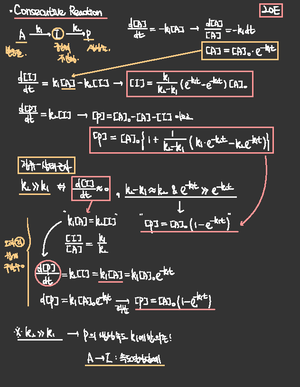 • Consecutive Reaction
A →k₁ I →k₂ P
d[A]/dt = -k₁[A] → d[A]/[A] = -k₁dt
[A]=[A]₀·e^-k₁t
d[I]/dt = k₁[A]-k₂[I] → [I] = k₁/(k₂-k₁) (e^-k₁t - e^-k₂t)[A]₀
d[P]/dt = k₂[I] → [P]=[A]₀-[A]-[I]
[P]=[A]₀{1+ 1/(k₂-k₁) (k₁·e^-k₂t - k₂e^-k₁t)}
k₂≫k₁ ⇔ d[I]/dt ≈ 0, k₂-k₁≈k₂ & e^-k₁t ≫ e^-k₂t
"k₁[A]=k₂[I]" "[P]=[A]₀(1-e^-k₁t)"
[I]/[A] = k₁/k₂
d[P]/dt = k₂[I] = k₁[A] = k₁[A]₀e^-k₁t
d[P]=k₁[A]₀e^-k₁t → [P]=[A]₀(1-e^-k₁t)
※ k₂≫k₁ → P의
A→I : 속도결정단계